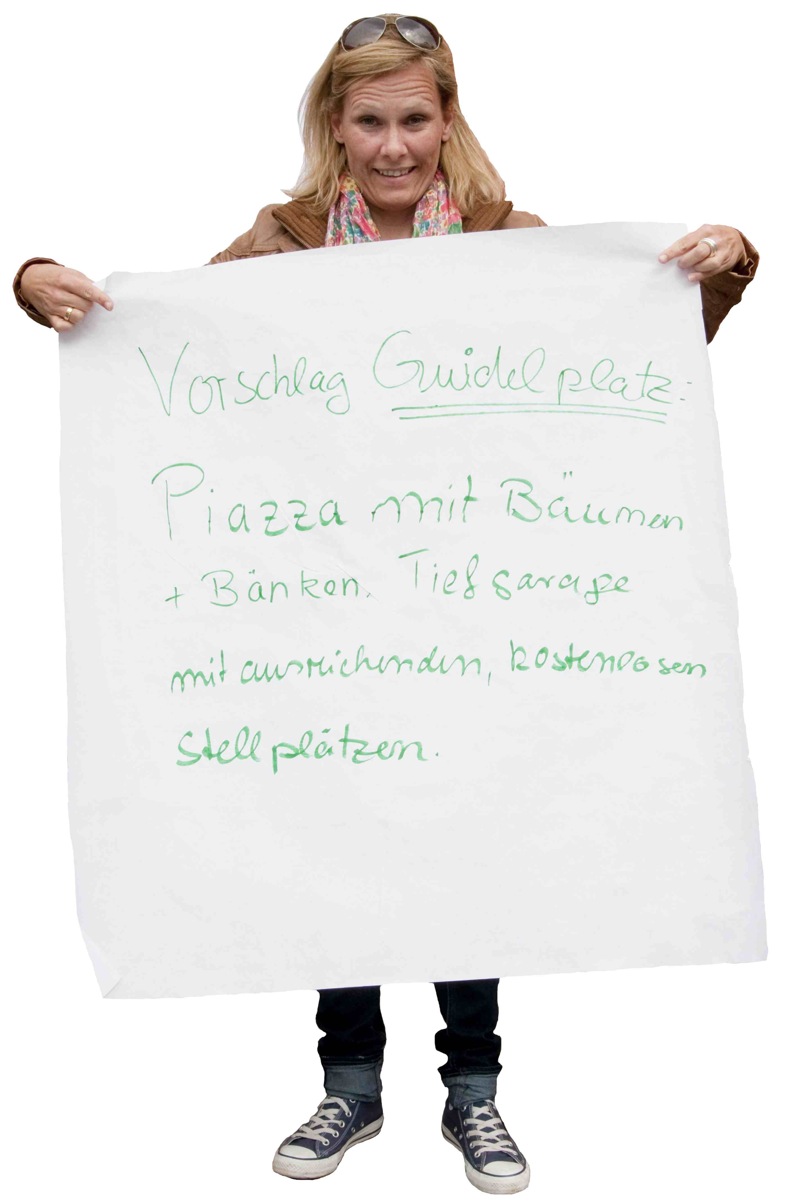 Vorschlag Guidelplatz:
Piazza mit Bäumen
+ Bänken. Tiefgarage
mit ausreichenden, kostenlosen
Stellplätzen.